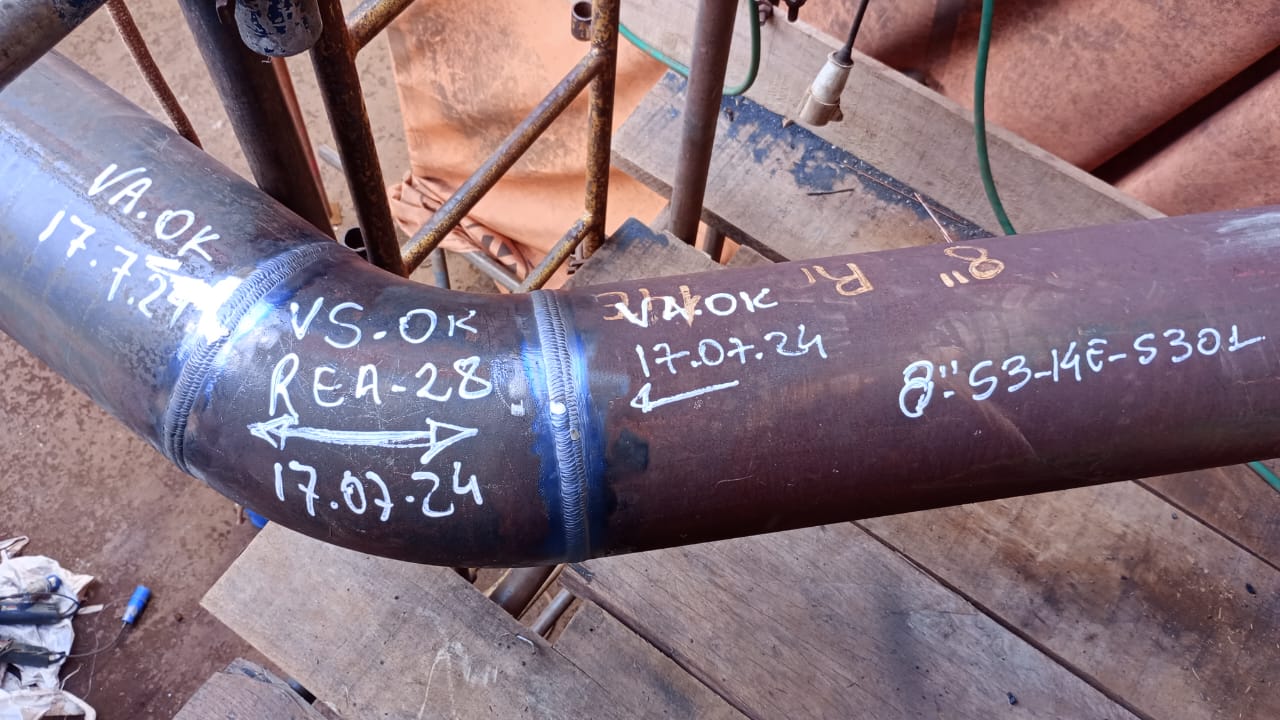 VA.OK
17.7.24
VS.OK
REA-28
17.07.24
VA.OK
17.07.24
8" R1
8"-S3-14E-S301